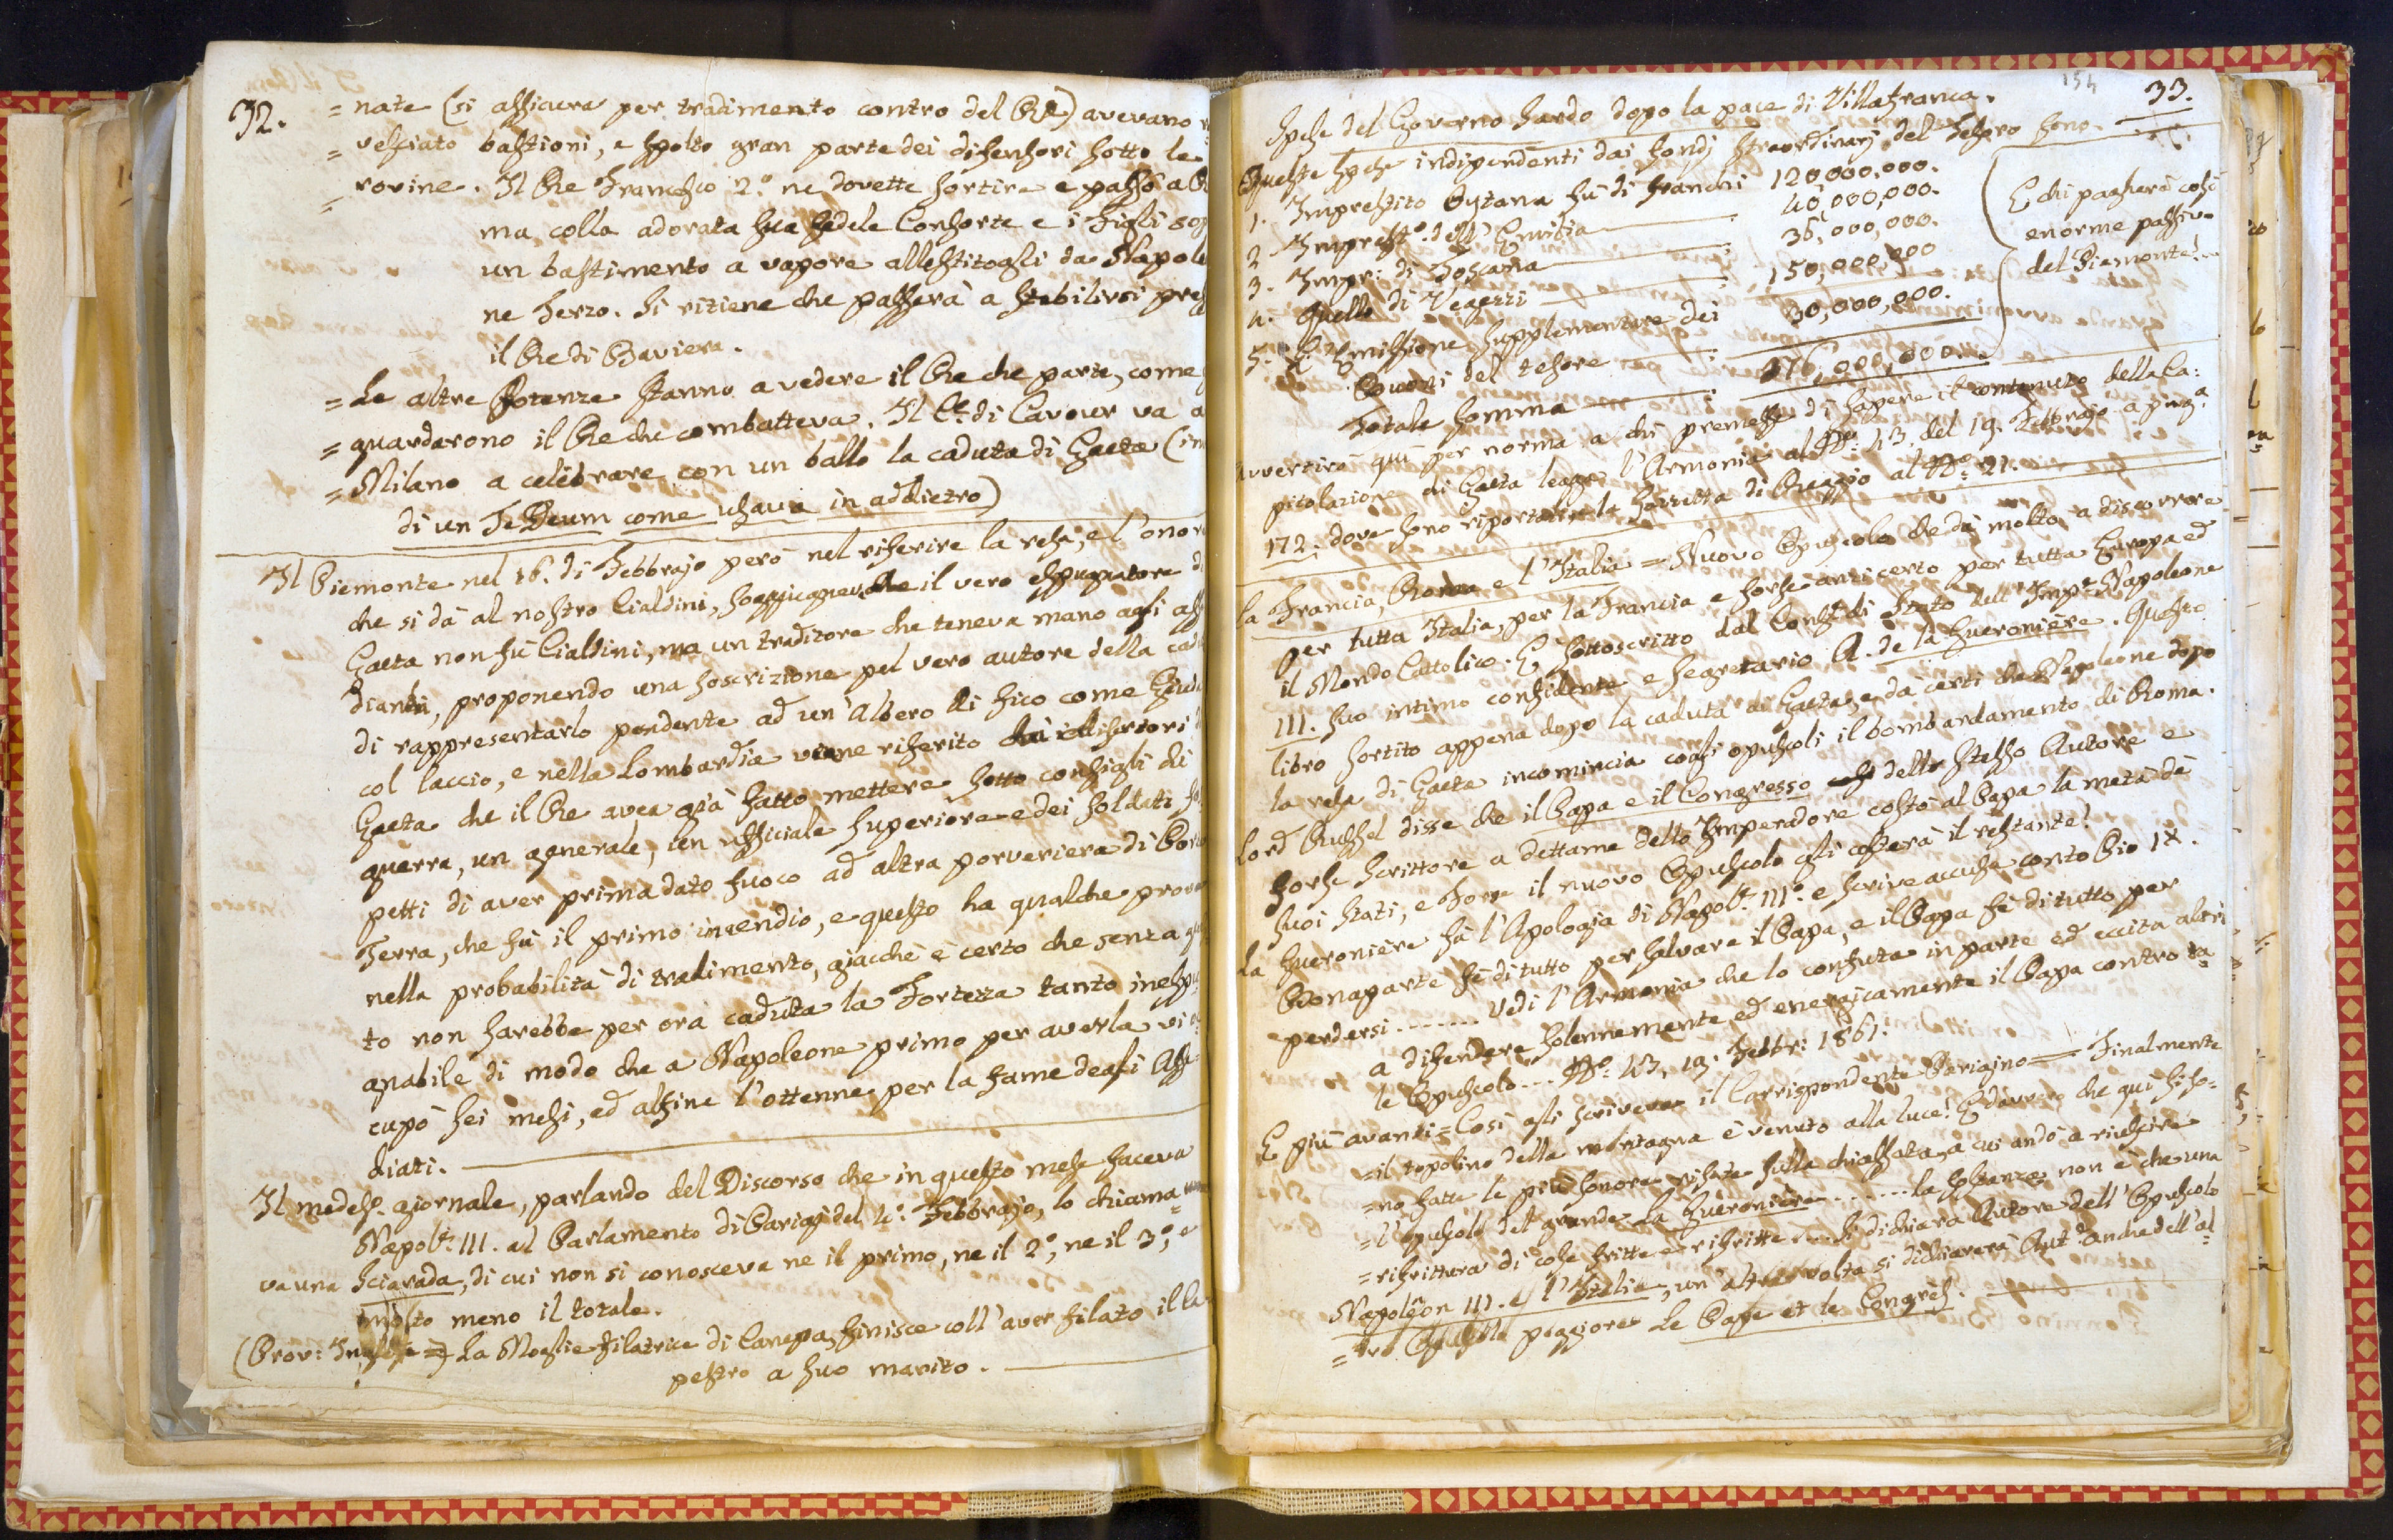 32.
= nate (si assicura per tradimento contro del Re) avevano
= vesciato bastioni, e spolto gran parte dei difensori sotto le
= rovine. Il Re Francesco 2.° ne dovette sortire e passò a
ma colla adorata sua fedele Consorte e i Figli
un bastimento a vapore allestitogli da Napole
ne terzo. Si ritiene che passerà a stabilirsi pres
il Re di Baviera.
= Le altre Potenze stanno a vedere il Re che parte, come
= guardarono il Re che combatteva. Il C. di Cavour va a
= Milano a celebrare con un ballo la caduta di Gaeta (in
di un Te Deum come usava in addietro)
Il Piemonte nel 16. di Febbrajo però nel riferire la resa, e l'onor
che si dà al nostro Cialdini, soggiugneva che il vero espugnatore di
Gaeta non fù Cialdini, ma un traditore che teneva mano agli asse
dianti, proponendo una soscrizione pel vero autore della cad
di rappresentarlo pendente ad un Albero di fico come Giuda
col laccio, e nella Lombardia viene riferito dai disertori
Gaeta che il Re avea già fatto mettere sotto consigli di
guerra, un generale, un ufficiale superiore e dei soldati so
petti di aver prima dato fuoco ad altra porveriera di
Terra, che fù il primo incendio, e questo ha qualche prova
nella probabilità di tradimento, giacchè è certo che senza
to non sarebbe per ora caduta la Fortezza tanto inespu
gnabile di modo che a Napoleone primo per averla vi
cupò sei mesi, ed alfine l'ottenne per la fame degli Asse
diati.
Il medes.° giornale, parlando del Discorso che in questo mese faceva
Napol.e III. al Parlamento di Parigi del 4.° Febbrajo, lo chiama
va una Sciarada, di cui non si conosceva ne il primo, ne il 2.°, ne il 3.°, e
molto meno il totale.
(Prov: Inglese =) La Moglie filatrice di Canepa, finisce coll'aver filato il ca
pestro a suo marito.
154
33.
Spese del Governo Sardo dopo la pace di Villafranca.
Queste spese indipendenti dai fondi straordinarj del Tesoro sono.
1. Imprestito Oytana fù di franchi 120,000,000.
2 Imprest.° dell'Emilia : 40,000,000.
3. Impr: di Toscana : 36,000,000.
4. Quello di Vegezzi : 150,000,000
5. E. Emissione supplementare dei
Buoni del tesoro : 30,000,000.
Totale somma : 376,000,000.
E chi pagherà cosi
enorme passivo
del Piemonte!..
Avvertirò quì per norma a chi premesse di sapere il contenuto della Ca:
pitolazione di Gaeta legga l'Armonia al N.° 43. del 19. Febbrajo a pag.a
172: dove sono riportate la Gazzetta di Reggio al N.° 21.
La Francia, Roma e l'Italia = Nuovo Opuscolo che dà molto a discorrere
per tutta Italia, per la Francia e forse anzi certo per tutta Europa ed
il Mondo Cattolico. È sottoscritto dal Cons.e di Stato dell'Imp.e Napoleone
III. suo intimo confidente e segretario A. de la Gueroniére. Questo
libro sortito appena dopo la caduta di Gaeta, e dà certi che Napoleone dopo
la resa di Gaeta incomincia cogli opuscoli il bombardamento di Roma.
Lord Russel disse che il Papa e il Congresso dello stesso Autore e
forse scrittore a dettame dello Imperadore costò al Papa la metà dè
suoi stati, e Forse il nuovo Opuscolo gli costerà il restante!
La Gueroniére fà l'Apologia di Napol.e III.° e scrive accusa conto Pio IX.
Bonaparte fè di tutto per salvare il Papa, e il Papa fè di tutto per
perdersi ....... Vedi l'Armonia che lo confuta in parte ed eccita altri
a difendere solennemente ed energicamente il Papa contro ta
le Opuscolo... N.° 43, 19. Febbr: 1861.
E più avanti = Così gli scriveva il Corrispondente Parigino = Finalmente
= il topolino della montagna è venuto alla luce! E davvero che quì si so=
= no fatte le più sonore risate sulla chiassata, a cui andò a riuscire
= l'opuscolo del grande La Gueroniére ....... la sostanza non è che una
= rifrittura di cose fritte e rifritte.... Si dichiara Autore dell'Opuscolo
Napoléon III. e l'Italie, un'altra volta si dichiarerà Aut. anche dell'al
= tro Opuscolo peggiore Le Pape et le Congrés.